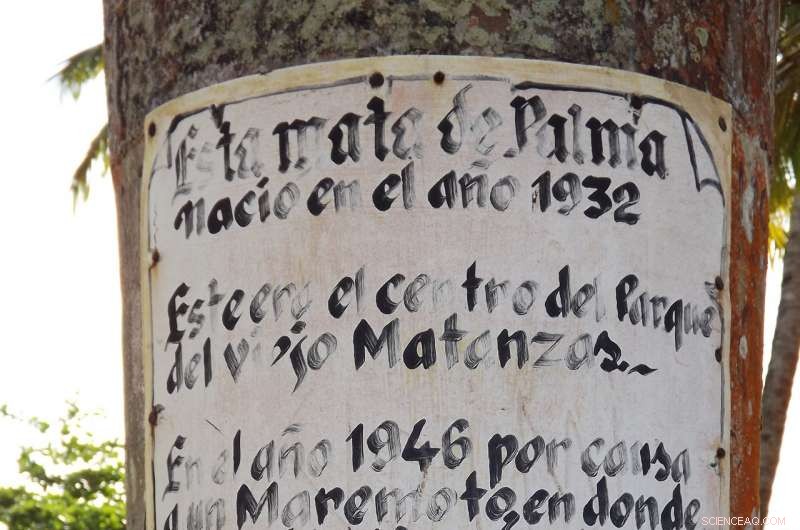 Esta mata de Palma
nacio en el año 1932
Este era el centro del Parque
del viejo Matanzas.
En el año 1946 por causa
d un Maremoto, en donde
SCIENCEAQ.COM